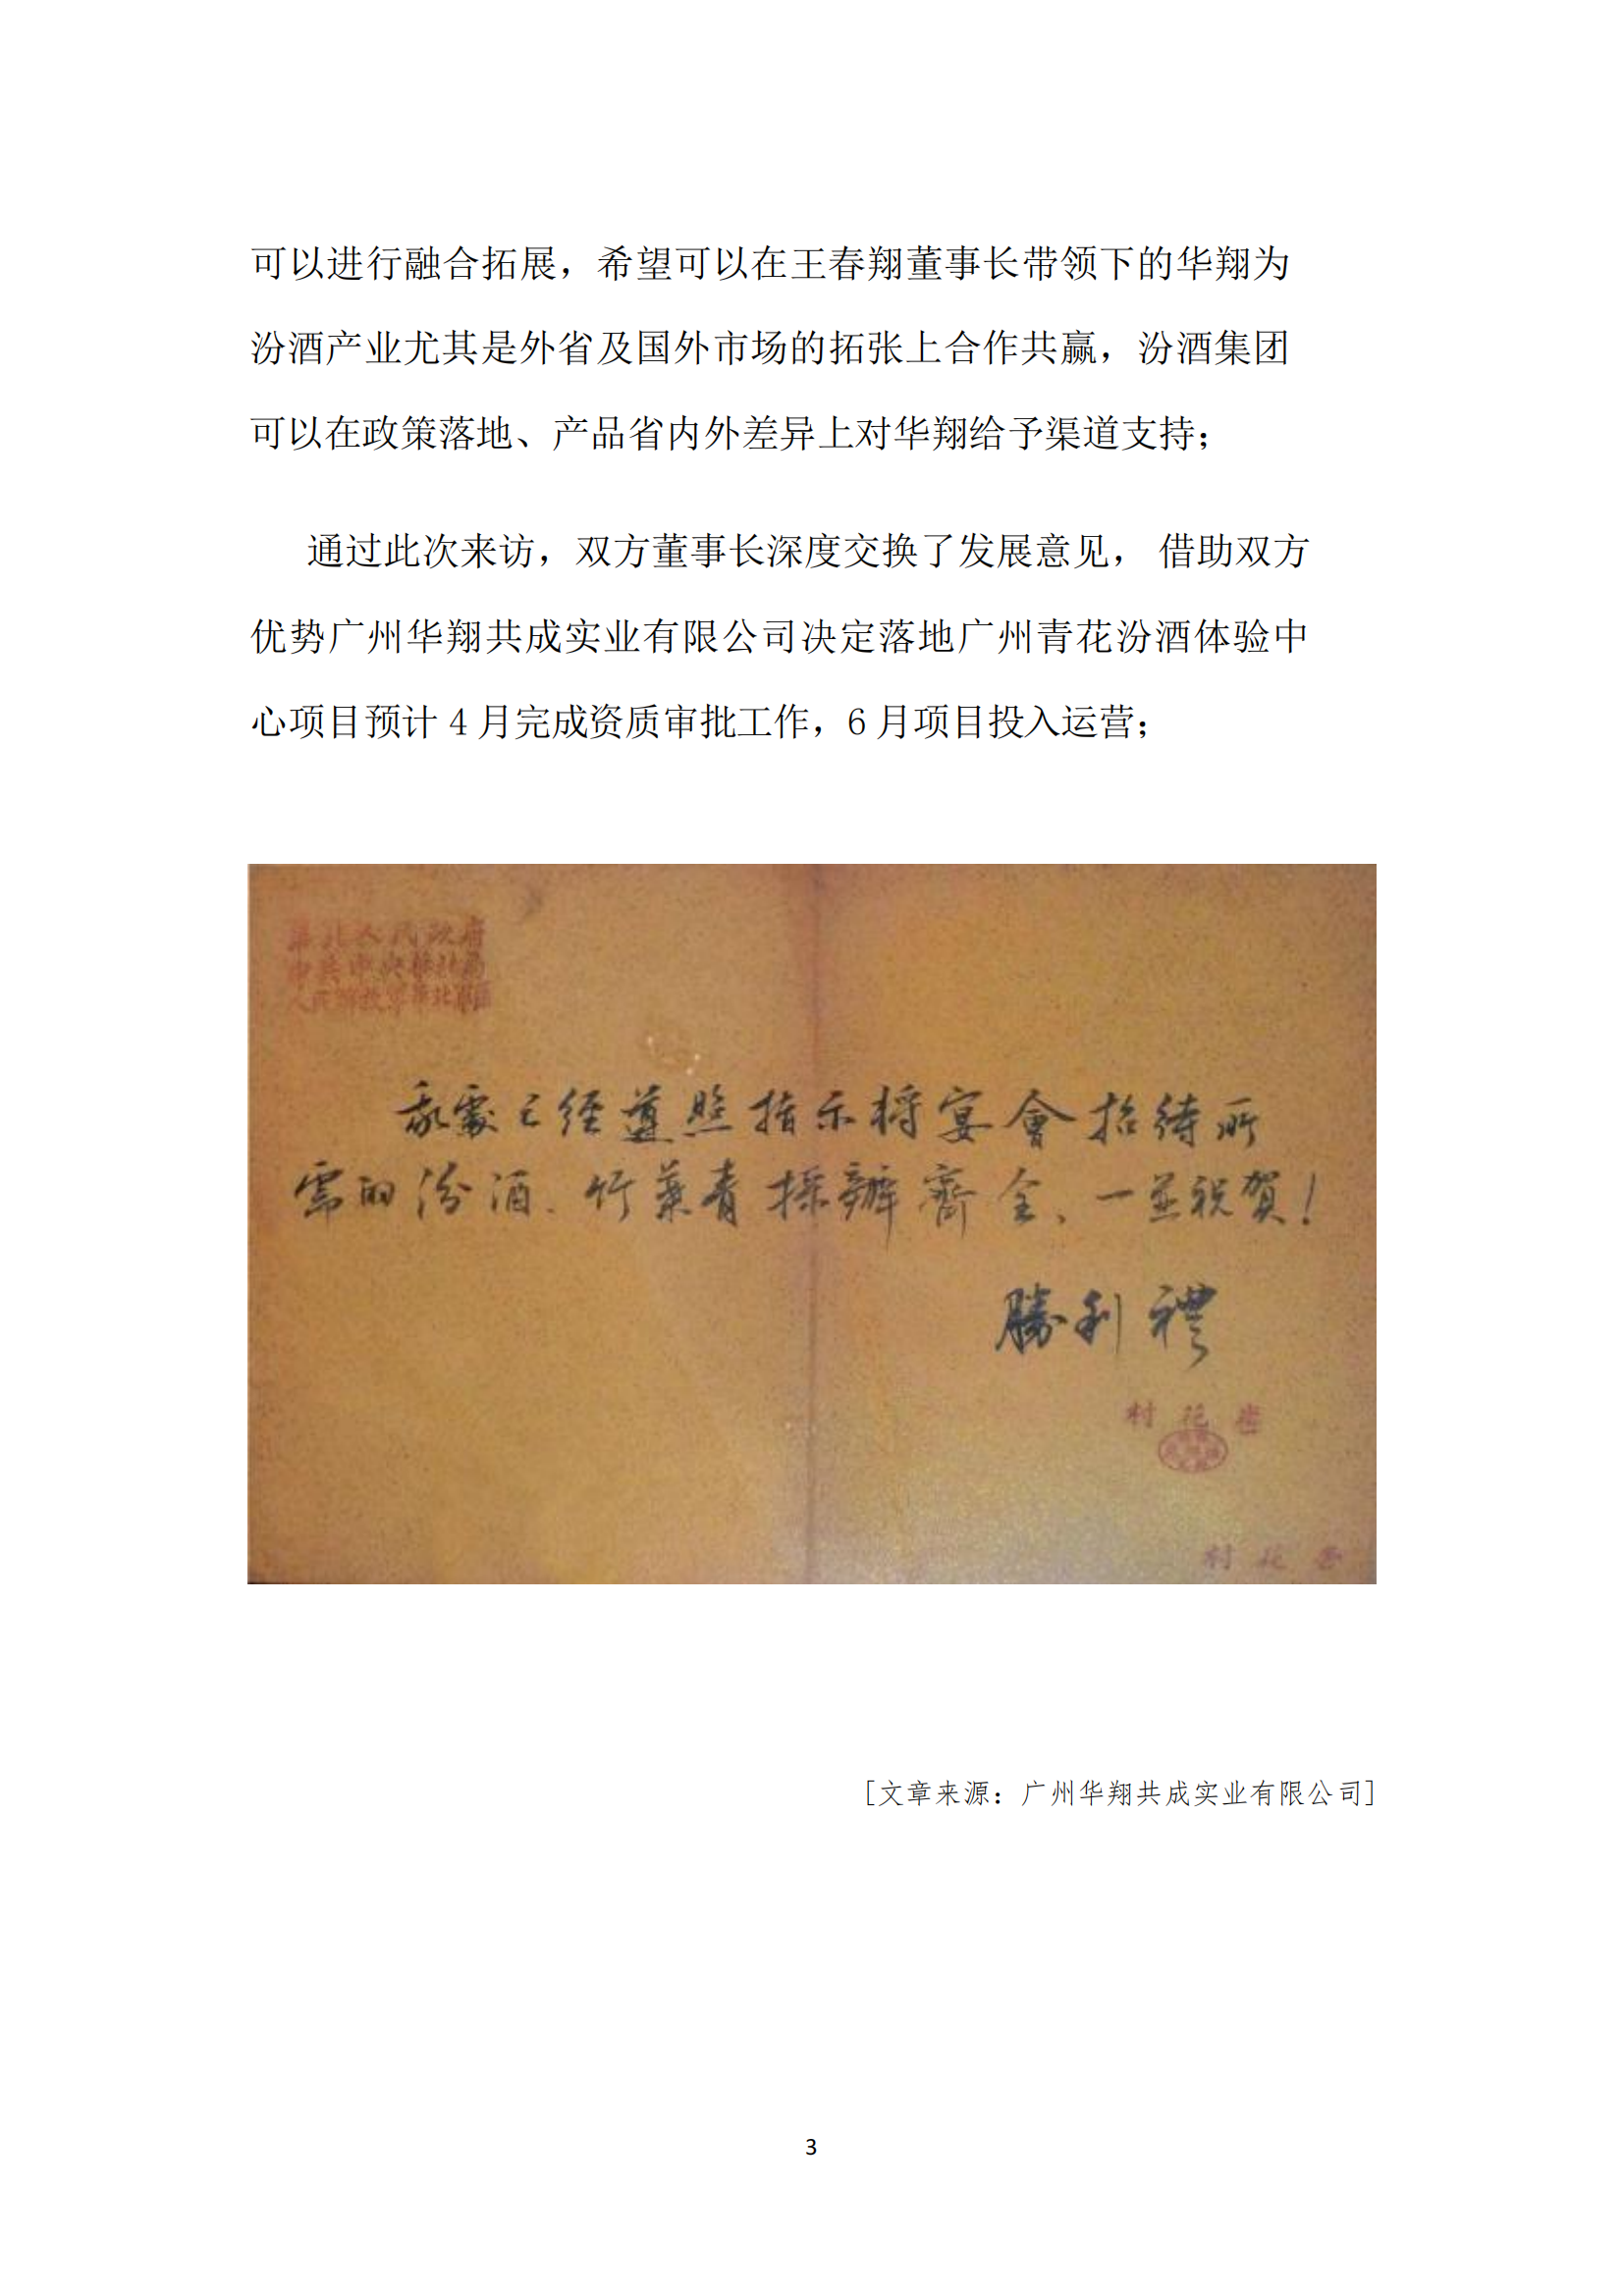 可以进行融合拓展，希望可以在王春翔董事长带领下的华翔为
汾酒产业尤其是外省及国外市场的拓张上合作共赢，汾酒集团
可以在政策落地、产品省内外差异上对华翔给予渠道支持；
通过此次来访，双方董事长深度交换了发展意见， 借助双方
优势广州华翔共成实业有限公司决定落地广州青花汾酒体验中
心项目预计 4 月完成资质审批工作，6 月项目投入运营；
華北人民政府
中共中央華北局
人民解放軍華北軍區
我處已经遵照指示将宴會招待所
需的汾酒、竹葉青採辦齊全、一並祝賀！
勝利禮
村花杏
村花杏
[文章来源：广州华翔共成实业有限公司]
3